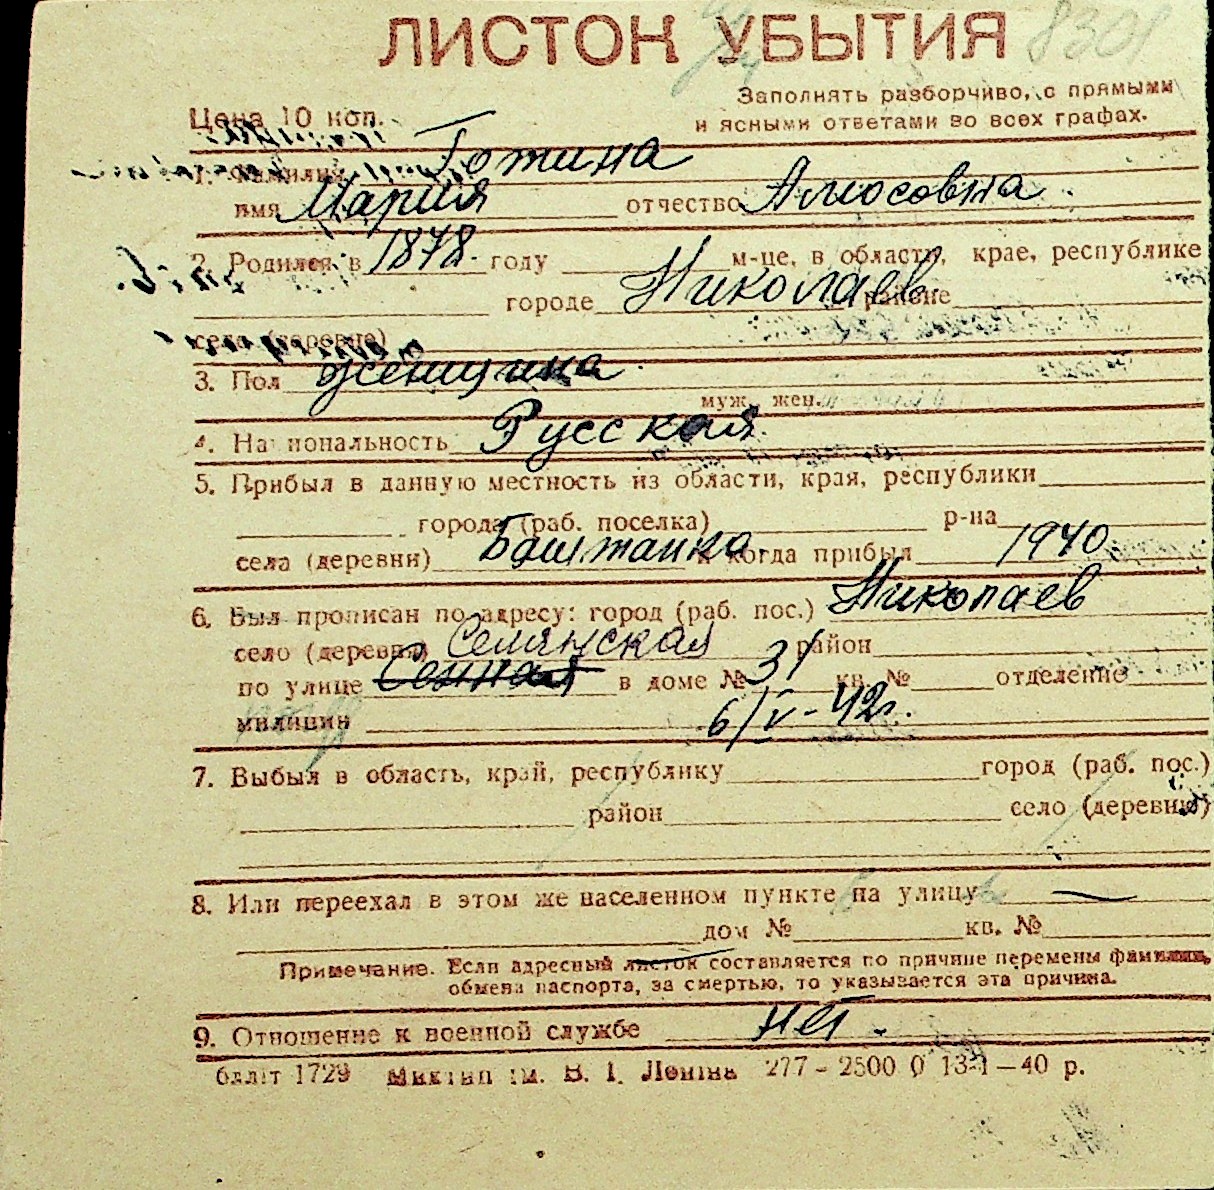 ЛИСТОК УБЫТИЯ 8301
Заполнять разборчиво, с прямыми
Цена 10 коп.
и ясными ответами во всех графах.
1. Фамилия Готина
имя Мария отчество Амосовна
2. Родился в 1878 году м-це, в области, крае, республике
городе Николаев районе
села (деревне)
3. Пол женщина
муж., жен.
4. Национальность Русская
5. Прибыл в данную местность из области, края, республики
города (раб. поселка) р-на
села (деревни) Баштанка и когда прибыл 1940
6. Был прописан по адресу: город (раб. пос.) Николаев
село (деревня) Семянская район
по улице Сенная в доме № 31 кв. № отделение
милиции 6/V-42г.
7. Выбыл в область, край, республику город (раб. пос.)
район село (деревню)
8. Или переехал в этом же населенном пункте на улицу —
дом № кв. №
Примечание. Если адресный листок составляется по причине перемены фамилии,
обмена паспорта, за смертью, то указывается эта причина.
9. Отношение к военной службе нет.
1729 ім. В. І. Леніна 277 - 2500 0 13-1-40 р.